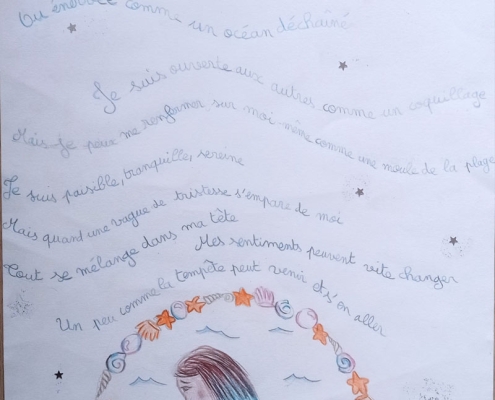 Ou énervée comme un océan déchaîné
Je suis ouverte aux autres comme un coquillage
Mais je peux me renfermer sur moi-même comme une moule de la plage
Je suis paisible, tranquille, sereine
Mais quand une vague de tristesse s'empare de moi
Tout se mélange dans ma tête
Mes sentiments peuvent vite changer
Un peu comme la tempête peut venir et s'en aller